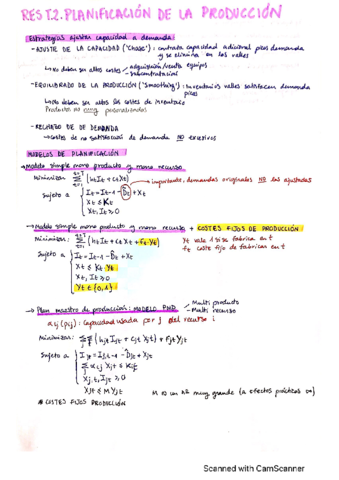 RES T.2. PLANIFICACIÓN DE LA PRODUCCIÓN
Estrategias ajustan capacidad a demanda:
- AJUSTE DE LA CAPACIDAD ('Chase'): contrata capacidad adicional picos demanda
y se elimina en los valles
↳ No deben ser altos costes - adquisición/venta equipos
- subcontratación
- EQUILIBRADO DE LA PRODUCCIÓN ('Smoothing'): Inventarios valles satisfacen demanda
picos
↳ No deben ser altos los costes de inventario
Producto no muy personalizados
- RECHAZO DE DEMANDA
↳ Costes de no satisfacción de demanda NO excesivos
MODELOS DE PLANIFICACIÓN
→ Modelo simple mono producto y mono recurso
Minimizar Σ (ht It + ct Xt) importante: demandas originales NO las ajustadas
Sujeto a { It = It-1 - D̂t + Xt
Xt ≤ Kt
Xt, It ≥ 0
→ Modelo simple mono producto y mono recurso + COSTES FIJOS DE PRODUCCIÓN
Minimizar: Σ (ht It + ct Xt + ft Yt) Yt vale 1 si se fabrica en t
ft coste fijo de fabricar en t
Sujeto a { It = It-1 - D̂t + Xt
Xt ≤ Kt · Yt
Xt, It ≥ 0
Yt ∈ {0,1}
→ Plan maestro de producción: MODELO PMP - Multi producto
- Multi recurso
αij (ρij): capacidad usada por j del recurso i
Minimizar: Σ Σ (hjt Ijt + cjt Xjt) + fjt Yjt
Sujeto a { Ijt = Ij,t-1 - D̂jt + Xjt
Σ αij Xjt ≤ Kit
Xj,t, Ijt ≥ 0
Xjt ≤ M Yjt M es un nº muy grande (a efectos prácticos ∞)
# COSTES FIJOS PRODUCCIÓN
Scanned with CamScanner